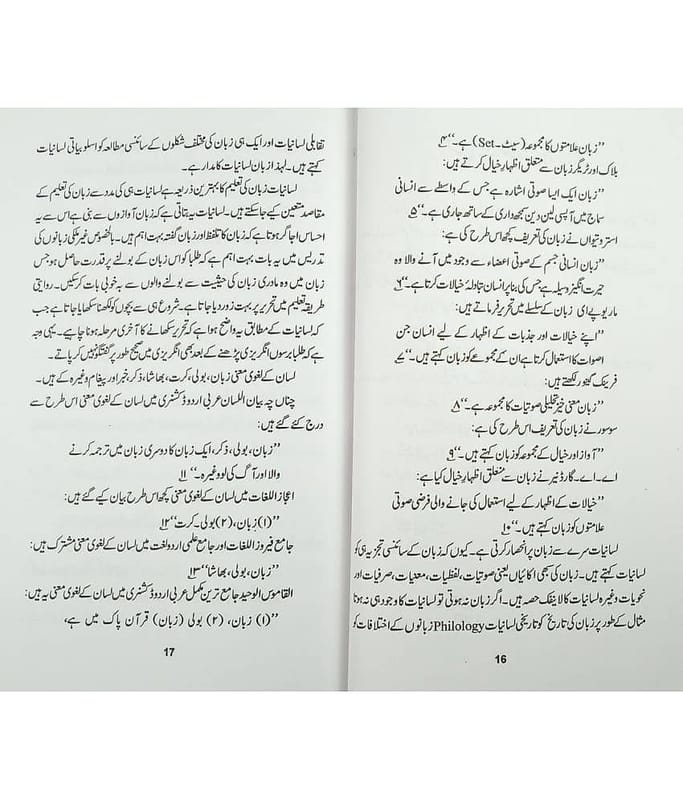 ’’زبان علامتوں کا مجموعہ (سیٹ۔Set) ہے۔‘‘ ۴
بلاک اور ٹریگر زبان سے متعلق اظہارِ خیال کرتے ہیں:
’’زبان ایک ایسا صوتی اشارہ ہے جس کے واسطے سے انسانی
سماج میں آپسی لین دین سمجھداری کے ساتھ جاری ہے۔‘‘ ۵
استروتیواں نے زبان کی تعریف کچھ اس طرح کی ہے:
’’زبان انسانی جسم کے صوتی اعضاء سے وجود میں آنے والا وہ
حیرت انگیز وسیلہ ہے جس کی بنا پر انسان تبادلۂ خیالات کرتا ہے۔‘‘ ۶
ماریو پے ای زبان کے سلسلے میں تحریر فرماتے ہیں:
’’اپنے خیالات اور جذبات کے اظہار کے لیے انسان جن
اصوات کا استعمال کرتا ہے ان کے مجموعے کو زبان کہتے ہیں۔‘‘ ۷
فرینک گینور لکھتے ہیں:
’’زبان معنی خیز تحلیلی صوتیات کا مجموعہ ہے۔‘‘ ۸
سوسور نے زبان کی تعریف اس طرح کی ہے:
’’آواز اور خیال کے مجموعہ کو زبان کہتے ہیں۔‘‘ ۹
اے۔اے۔گارڈنیر نے زبان سے متعلق اظہارِ خیال کیا ہے:
’’خیالات کے اظہار کے لیے استعمال کی جانے والی فرضی صوتی
علامتوں کو زبان کہتے ہیں۔‘‘ ۱۰
لسانیات سرے سے زبان پر انحصار کرتی ہے۔ کیوں کہ زبان کے سائنسی تجزیہ ہی کو
لسانیات کہتے ہیں۔ زبان کی سبھی اکائیاں یعنی صوتیات، لفظیات، معنیات، صرفیات اور
نحویات وغیرہ لسانیات کا لاینفک حصہ ہیں۔ اگر زبان نہ ہوتی تو لسانیات کا وجود ہی نہ ہوتا
مثال کے طور پر زبان کی تاریخ کو تاریخی لسانیات Philology زبانوں کے اختلافات کو
16
تقابلی لسانیات اور ایک ہی زبان کی مختلف شکلوں کے سائنسی مطالعہ کو اسلوبیاتی لسانیات
کہتے ہیں۔ لہٰذا زبان لسانیات کا مدار ہے۔
لسانیات زبان کی تعلیم کا بہترین ذریعہ ہے لسانیات ہی کی مدد سے زبان کی تعلیم کے
مقاصد متعین کیے جاسکتے ہیں۔ لسانیات یہ بتاتی ہے کہ زبان آوازوں سے بنی ہے اس سے یہ
احساس اجاگر ہوتا ہے کہ زبان کا تلفظ اور زبان گفتہ بہت اہم ہیں۔ بالخصوص غیر ملکی زبانوں کی
تدریس میں یہ بات بہت اہم ہے کہ طلبا کو اس زبان کے بولنے پر قدرت حاصل ہو جس
زبان میں وہ مادری زبان کی حیثیت سے بولنے والوں سے بہ خوبی بات کرسکیں۔ روایتی
طریقہ تعلیم میں تحریر پر بہت زور دیا جاتا ہے۔ شروع ہی سے بچوں کو لکھنا سکھایا جاتا ہے جب
کہ لسانیات کے مطابق یہ واضح ہوا ہے کہ تحریر سکھانے کا آخری مرحلہ ہونا چاہیے۔ یہی وجہ
ہے کہ طلبا برسوں انگریزی پڑھنے کے بعد بھی انگریزی میں صحیح طور پر گفتگو نہیں کر پاتے۔
لسان کے لغوی معنی زبان، بولی، کرت، بھاشا، ذکر خیر اور پیغام وغیرہ کے ہیں۔
چناں چہ بیان اللسان عربی اردو ڈکشنری میں لسان کے لغوی معنی اس طرح سے
درج کئے گئے ہیں:
’’زبان، بولی، ذکر، ایک زبان کا دوسری زبان میں ترجمہ کرنے
والا اور آگ کی لو وغیرہ۔‘‘ ۱۱
اعجاز اللغات میں لسان کے لغوی معنی کچھ اس طرح بیان کیے گئے ہیں:
’’(۱) زبان، (۲) بولی۔ کرت‘‘ ۱۲
جامع فیروز اللغات اور جامع علمی اردو لغت میں لسان کے لغوی معنی مشترک ہیں:
’’زبان، بولی، بھاشا‘‘ ۱۳
القاموس الوحید جامع ترین مکمل عربی اردو ڈکشنری میں لسان کے لغوی معنی یہ ہیں:
’’(۱) زبان، (۲) بولی (زبان) قرآن پاک میں ہے،
17